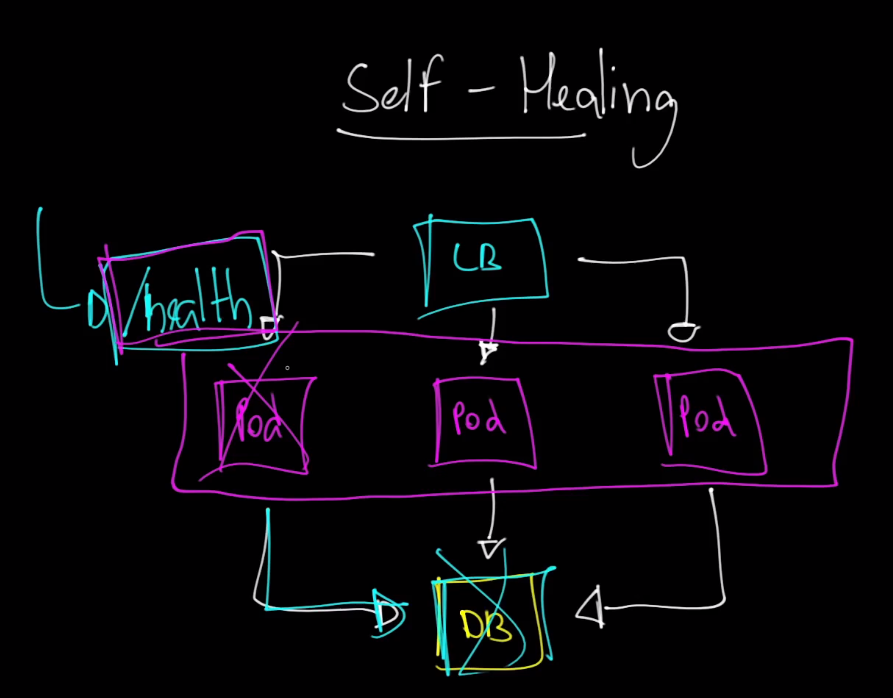 Self - Healing
LB
/health
Pod
Pod
Pod
DB